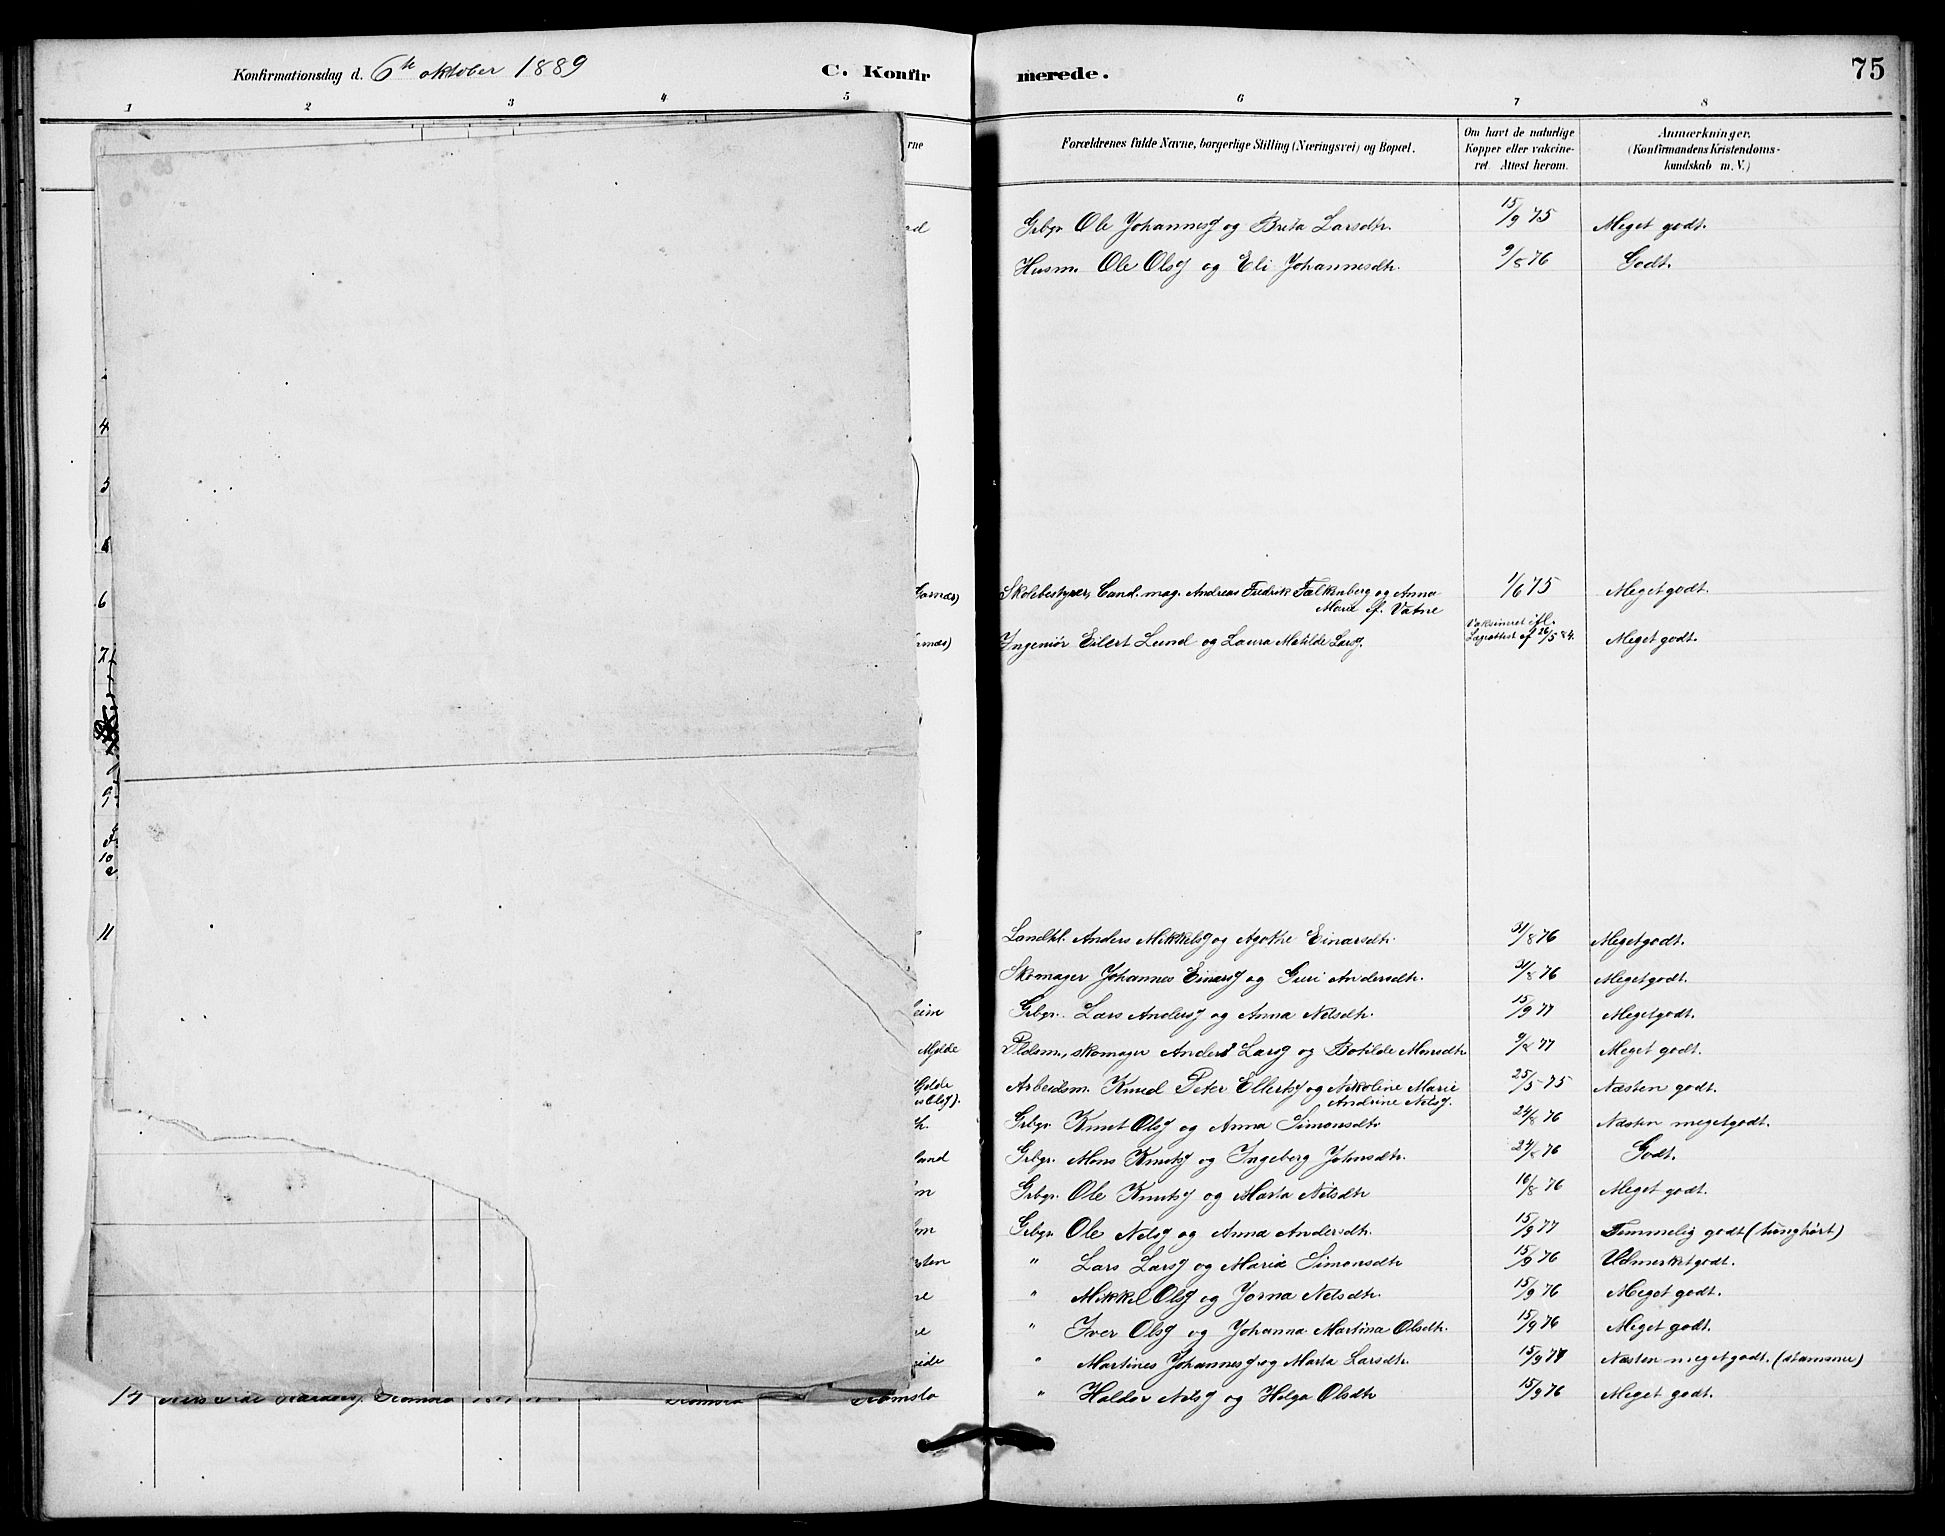 Konfirmationsdag d. 6te oktober 1889 C. Konfirmerede. 75
1 2 3 4 5 6 7 8
Forældrenes fulde Navne, borgerlige Stilling (Næringsvei) og Bopæl.
Om havt de naturlige Kopper eller vakcineret. Attest herom.
Anmærkninger. (Konfirmandens Kristendomskundskab m. V.)
Grbgr. Ole Johannesʃ og Brita Larsdtr. 15/9 75 Meget godt.
Husm. Ole Olsʃ og Eli Johannesdtr. 9/8 76 Godt.
4
5
6
7
9
10
11
Skolebestyrer, Cand. mag. Andreas Fredrik Falkenberg og Anna Marie f. Vatne 1/6 75 Meget godt.
Ingeniør Eilert Lund og Laura Matilde Larsʃ. Vaksineret ifl. Lægeattest af 26/5 84. Meget godt.
Landhl. Anders Mikkelsʃ og Agothe Einarsdtr. 31/8 76 Meget godt.
Skomager Johannes Einarsʃ og Guri Andersdtr. 31/8 76 Meget godt.
eim Grbgr. Lars Andersʃ og Anna Nelsdtr. 15/9 77 Meget godt.
Mjelde Pldsm., skomager Anders Larsʃ og Botilde Monsdtr 9/8 77 Meget godt.
Arbeidsm. Knud Peter Ellertsʃ og Nikoline Marie Andrine Nelsʃ. 25/5 75 Næsten godt.
Grbgr. Knut Olsʃ og Anna Simonsdtr 24/8 76 Næsten meget godt.
land Grbgr. Mons Knutsʃ og Ingeborg Johnsdtr. 24/8 76 Godt.
Grbgr. Ole Knutsʃ og Marta Nilsdtr 16/8 76 Meget godt.
Grbgr. Ole Nelsʃ og Anna Andersdtr. 15/9 77 Temmelig godt (tunghørt)
" Lars Larsʃ og Marie Simonsdtr 15/9 76 Udmerket godt.
" Mikkel Olsʃ og Jorna Nelsdtr. 15/9 76 Meget godt.
" Iver Olsʃ og Johanna Martina Olsdtr. 15/9 76 Meget godt.
" Martines Johannesʃ og Marta Larsdtr. 15/9 77 Næsten meget godt. (stammer)
" Haldor Nelsʃ og Helga Olsdtr 15/9 76 Meget godt.